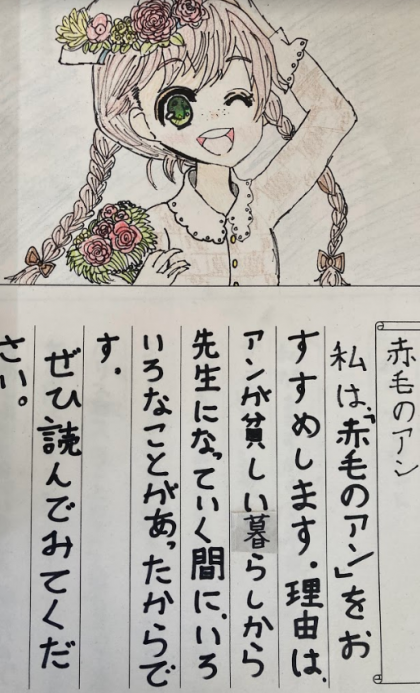 赤毛のアン
私は、「赤毛のアン」をお
すすめします。理由は、
アンが貧しい暮らしから
先生になっていく間に、いろ
いろなことがあったからで
す。
ぜひ読んでみてくだ
さい。